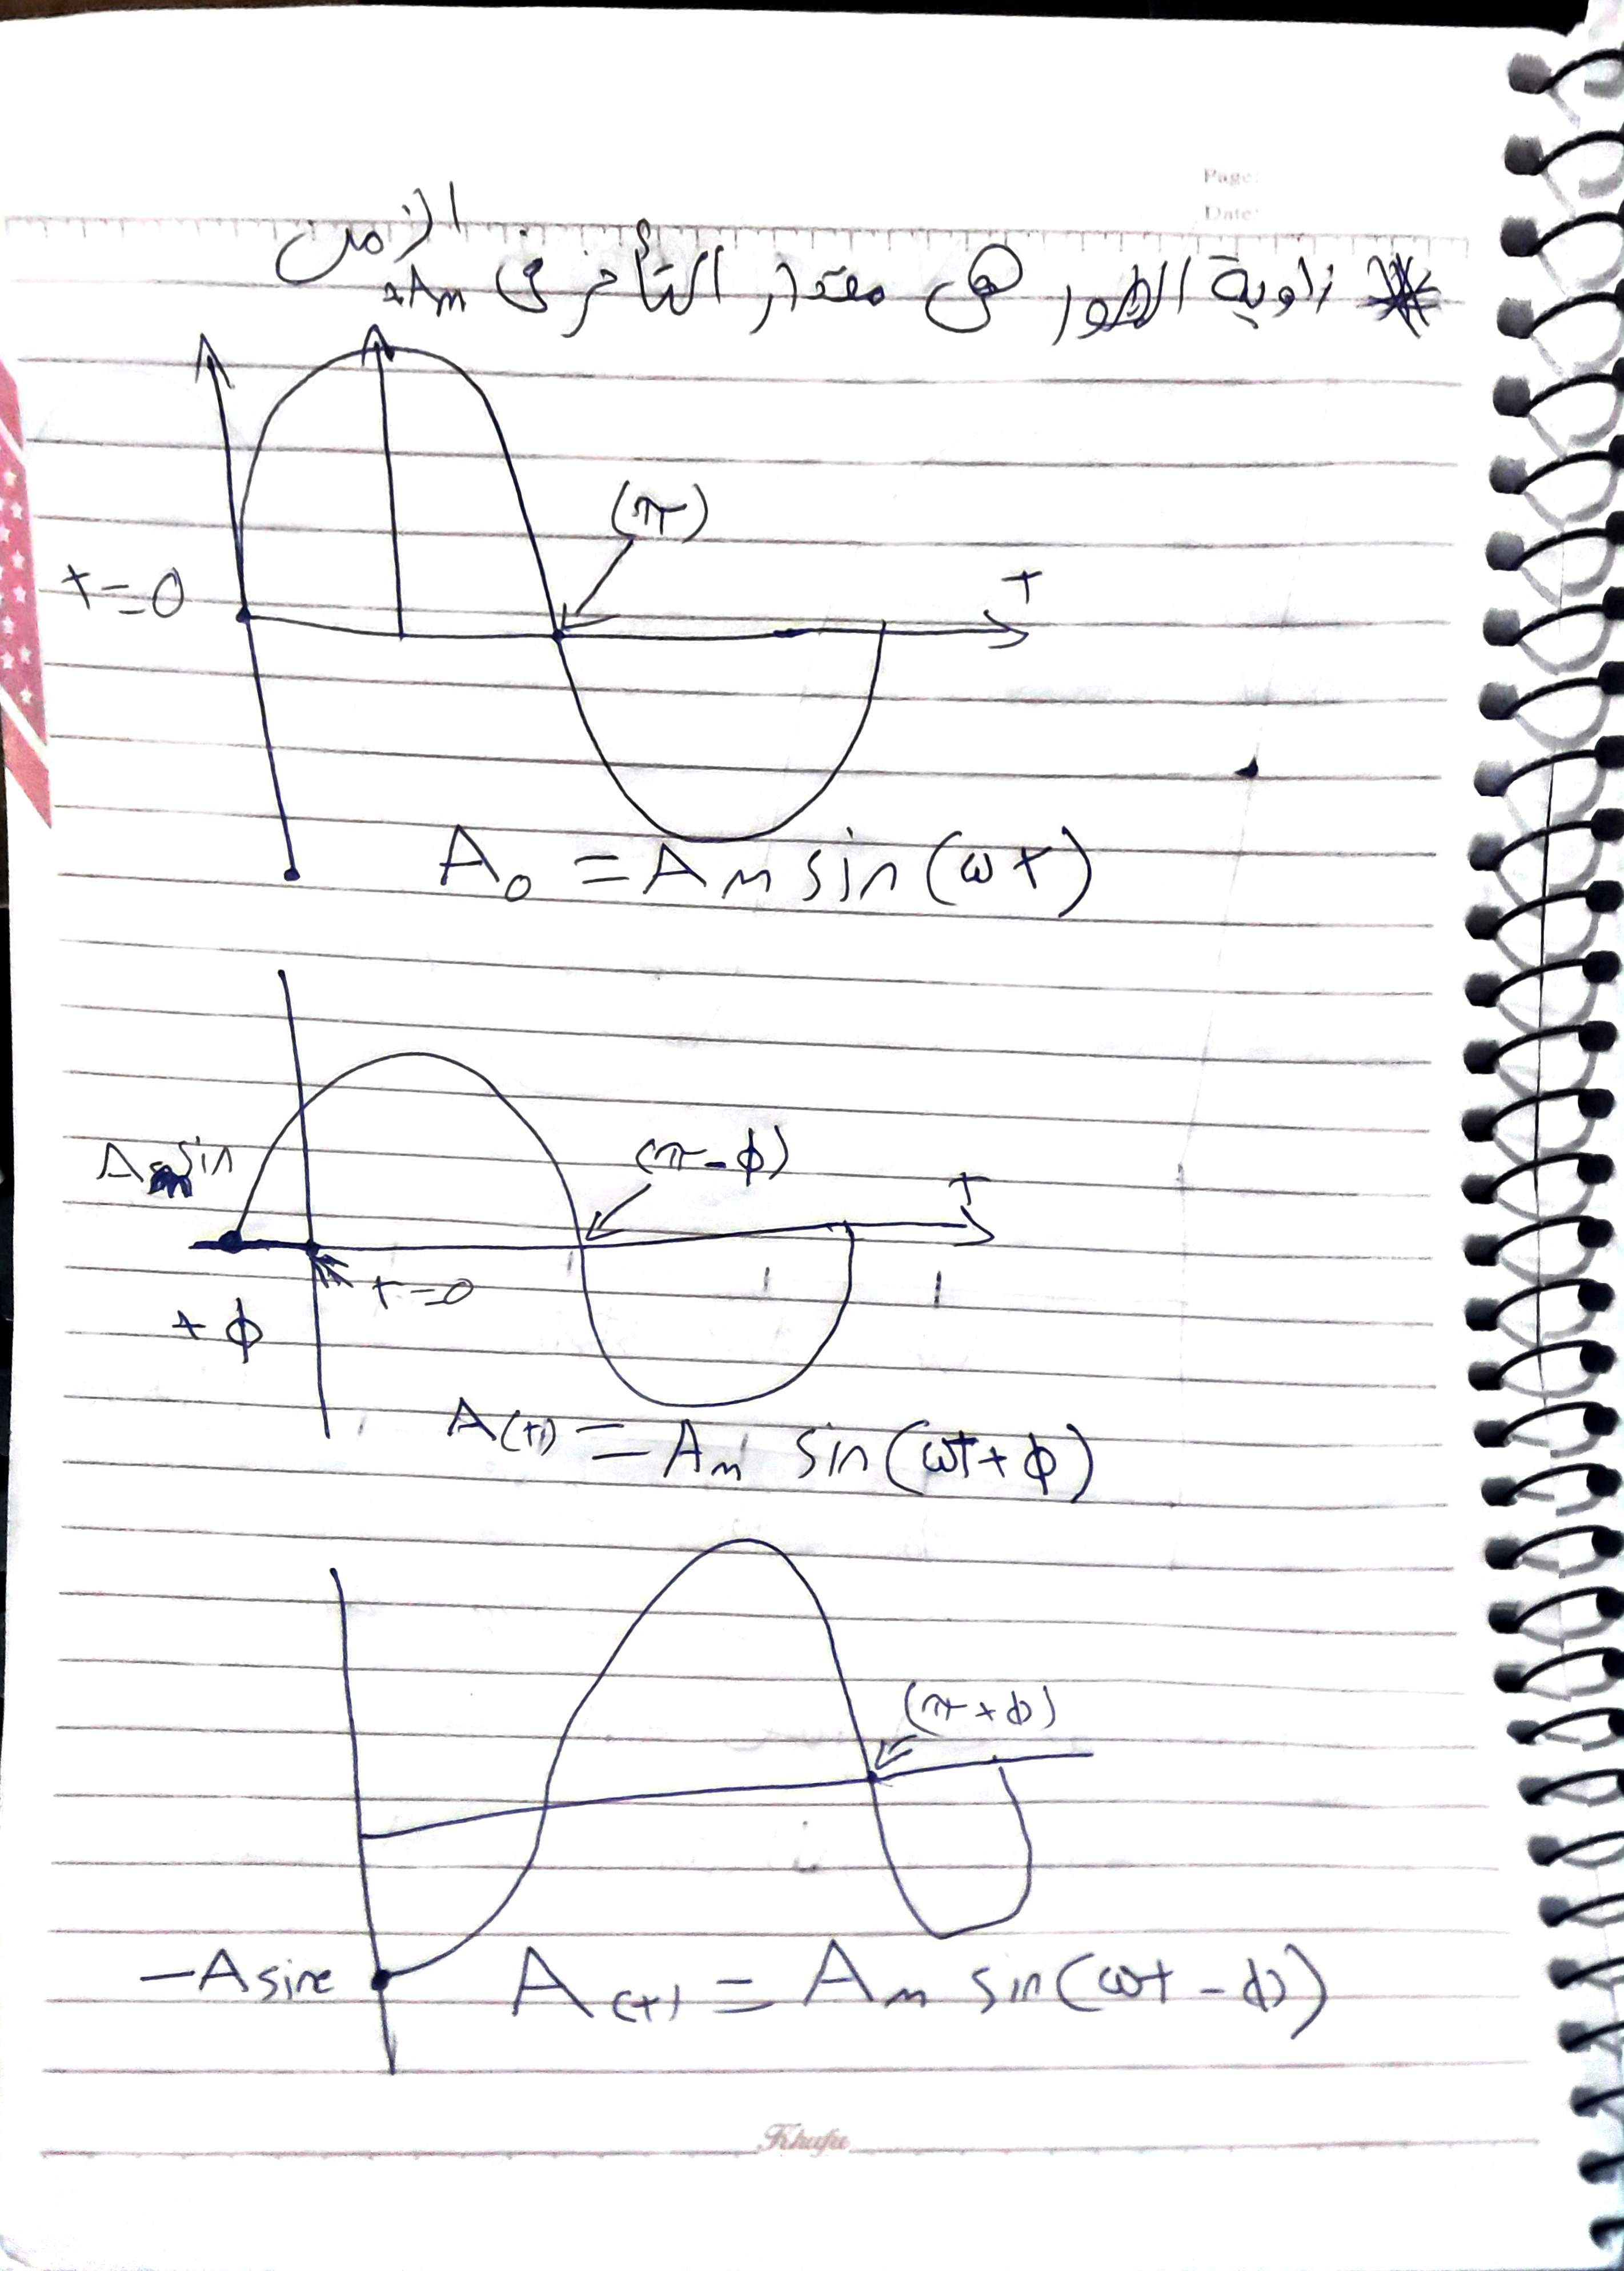 Page:
Date:
* زاوية الطور هى مقدار التأخر فى الزمن
+Am
(π)
t=0
T
A₀ = Am sin(ωt)
Am sin
(π-ϕ)
T
t=0
+ϕ
A(t) = Am sin(ωt+ϕ)
(π+ϕ)
-A sine
A(t) = Am sin(ωt-ϕ)
Khufu